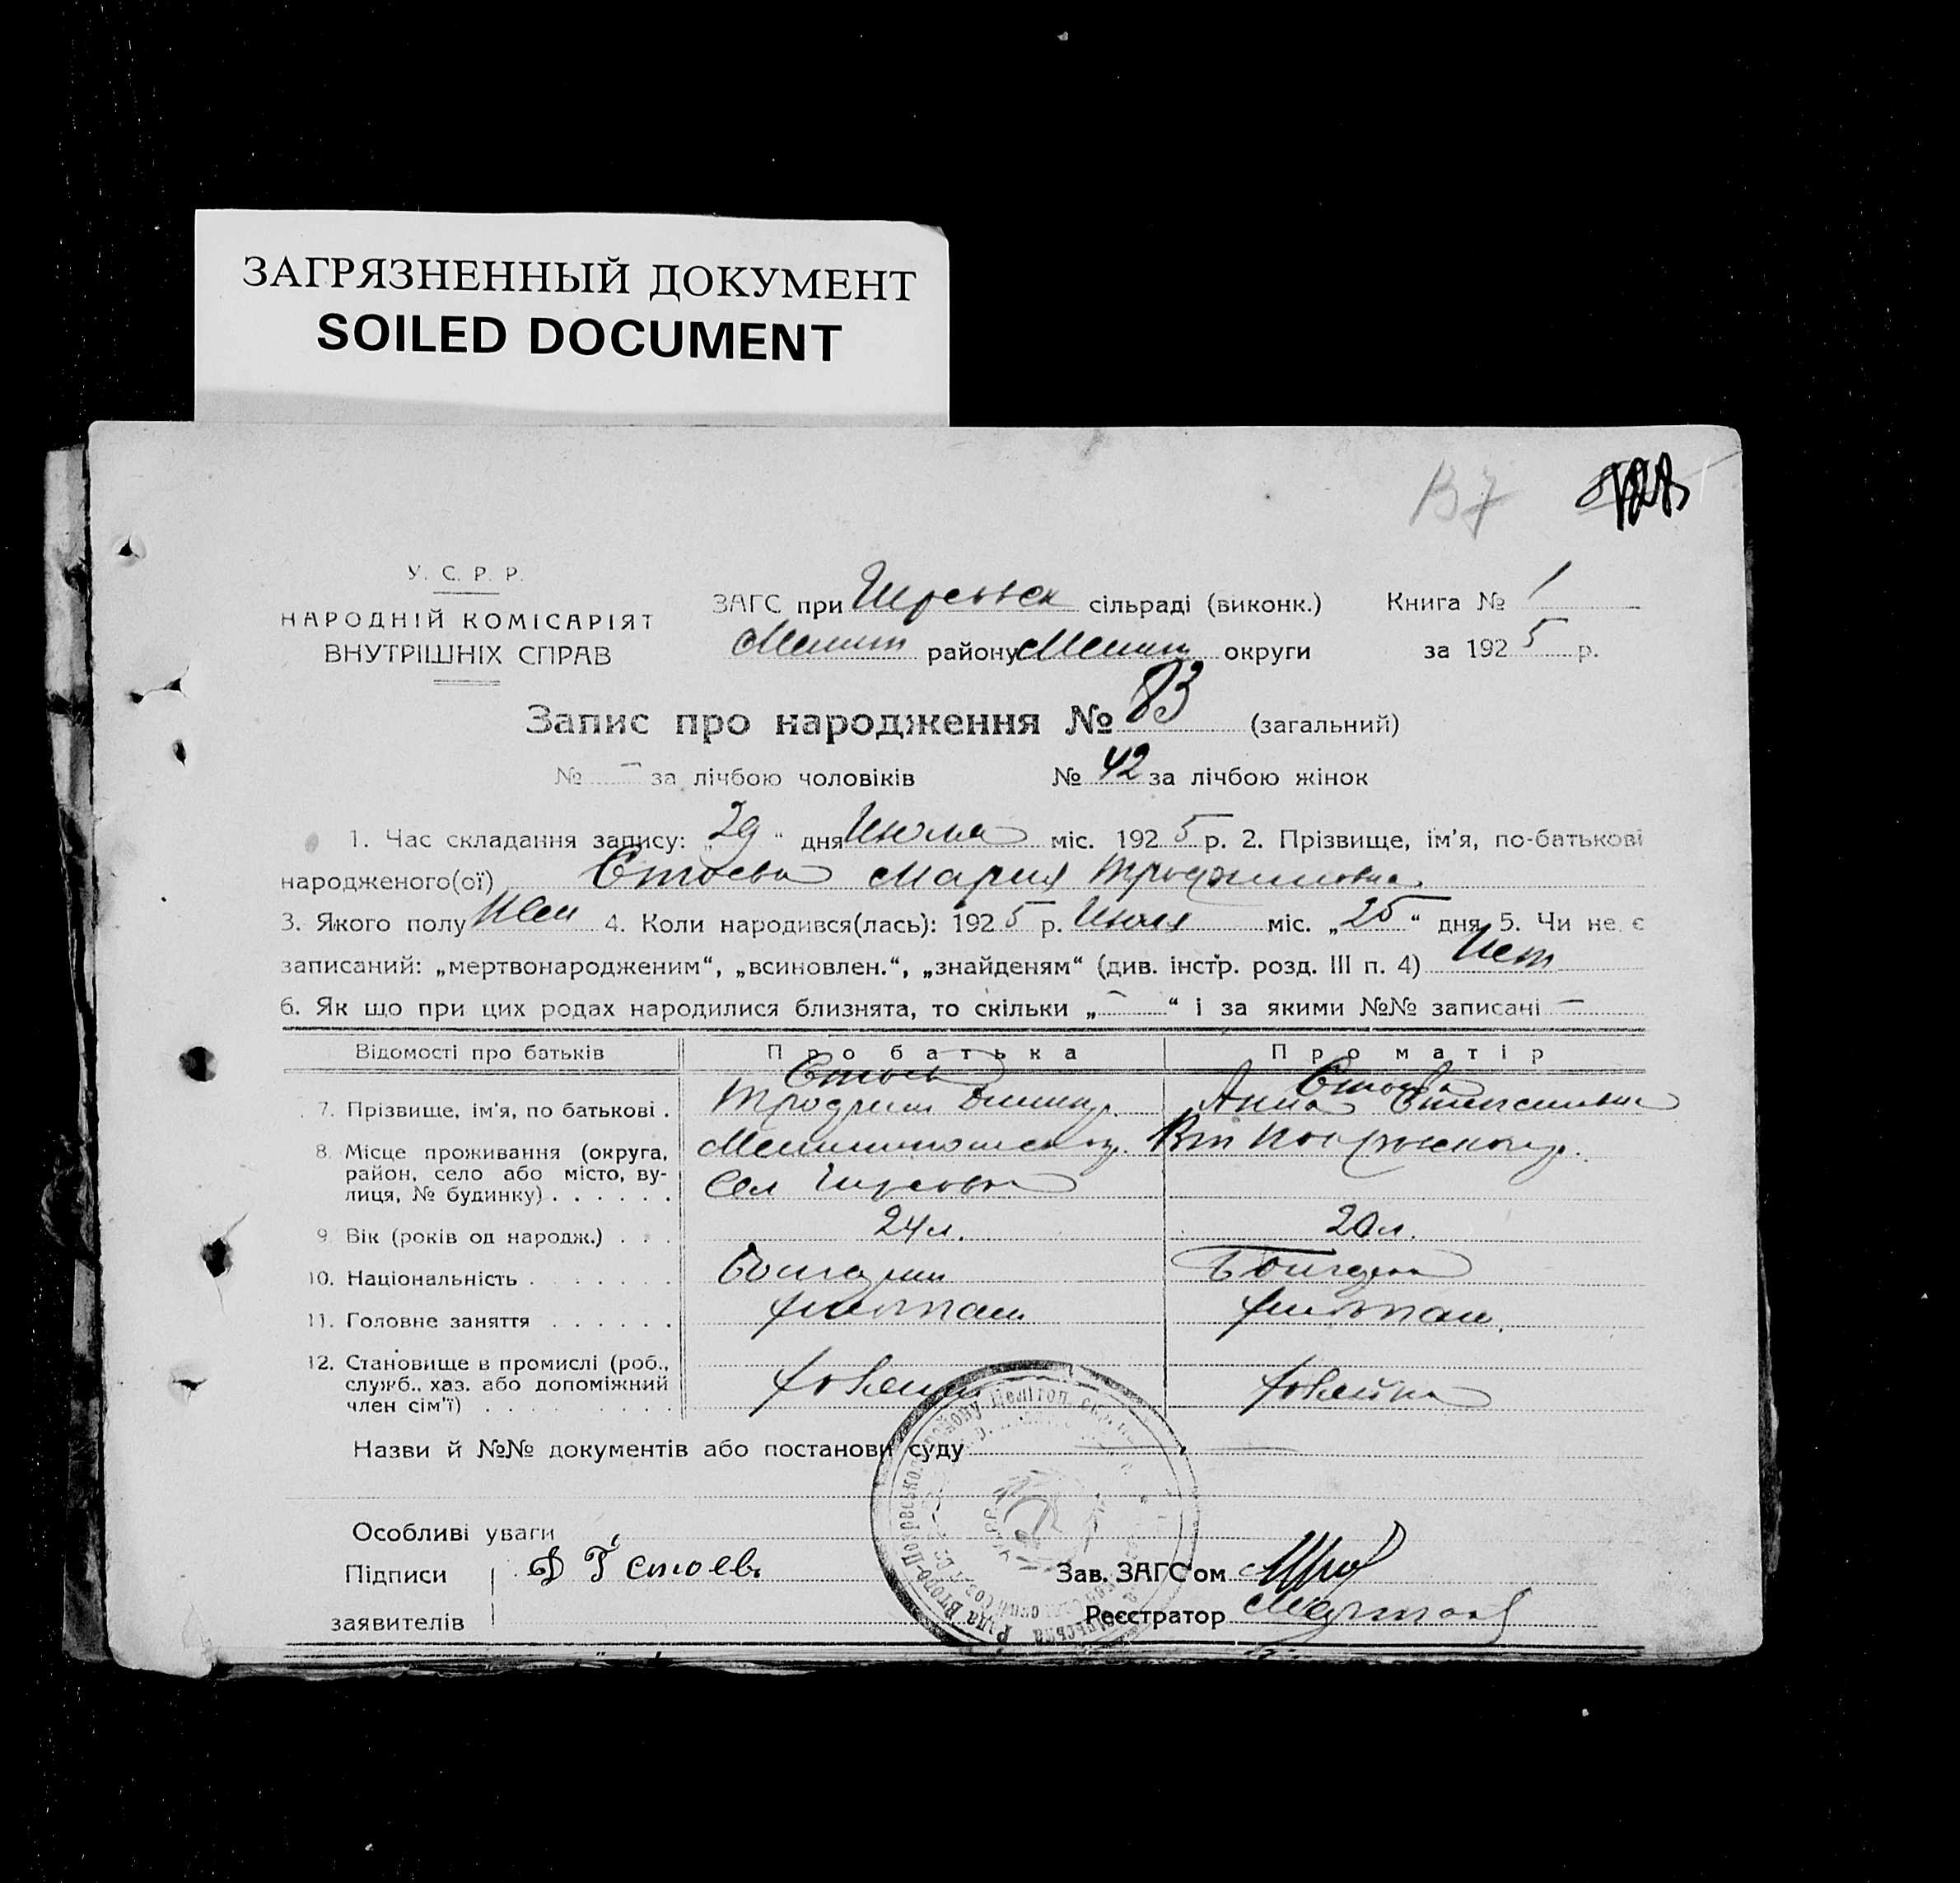 ЗАГРЯЗНЕННЫЙ ДОКУМЕНТ
SOILED DOCUMENT
В7
У. С. Р. Р.
НАРОДНІЙ КОМІСАРІЯТ
ВНУТРІШНІХ СПРАВ
ЗАГС при сільраді (виконк.) Книга № 1
Мелит району Мелит округи за 1925 р.
Запис про народження № 83 (загальний)
№ — за лічбою чоловіків № 42 за лічбою жінок
1. Час складання запису: „29“ дня Июля міс. 1925 р. 2. Прізвище, ім'я, по-батькові
народженого(ої) Стоева Мария Трофимовна
3. Якого полу Жен 4. Коли народився(лась): 1925 р. Июля міс. „25“ дня 5. Чи не є
записаний: „мертвонародженим“, „всиновлен.“, „знайденям“ (див. інстр. розд. III п. 4) Нет
6. Як що при цих родах народилися близнята, то скільки „—“ і за якими №№ записані —
Відомості про батьків Про батька Про матір
Стоев Стоева
7. Прізвище, ім'я, по батькові . Трофим Анна Степановна
8. Місце проживання (округа,
район, село або місто, ву-
лиця, № будинку) . . . . . . Сел
9. Вік (років од народж.) . . . 24 л. 20 л.
10. Національність . . . . . . . Болгарин Болгарка
11. Головне заняття . . . . . .
12. Становище в промислі (роб.,
служб., хаз. або допоміжний
член сім'ї) . . . . . . . . .
Назви й №№ документів або постанови суду
Особливі уваги
Підписи Стоевъ Зав. ЗАГС'ом
заявителів Реєстратор